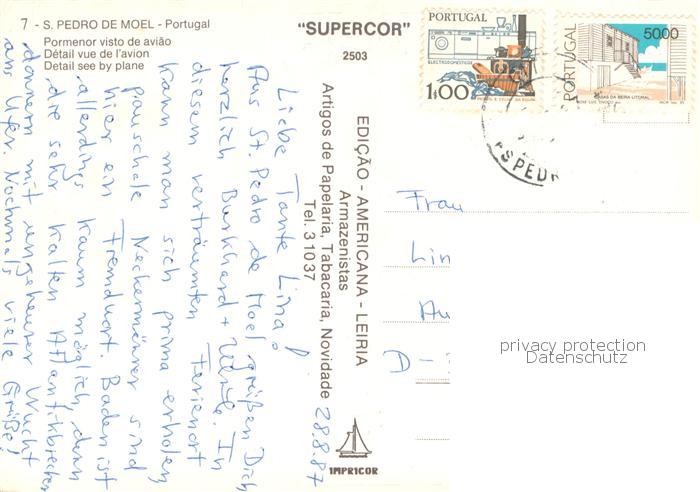 7 - S. PEDRO DE MOEL - Portugal
Pormenor visto de avião
Détail vue de l'avion
Detail see by plane
"SUPERCOR"
2503
PORTUGAL
ELECTRODOMÉSTICOS
1$00
PORTUGAL
5000
CASAS DA BEIRA LITORAL
S PED
EDIÇÃO - AMERICANA - LEIRIA
Armazenistas
Artigos de Papelaria, Tabacaria, Novidade
Tel. 31037
28.8.87
Liebe Tante Lina!
Aus St. Pedro de Moel grüßen Dich
herzlich Burkhard + Ulrike. In
diesem verträumten Ferienort
kann man sich prima erholen,
pauschale Neckermänner sind
hier ein Fremdwort. Baden ist
allerdings kaum möglich, denn
die sehr kalten Atlantikbrecher
donnern mit ungeheurer Wucht
ans Ufer. Nochmals viele Grüße!
Frau
Lin
Au
A -
privacy protection
Datenschutz
IMPRICOR